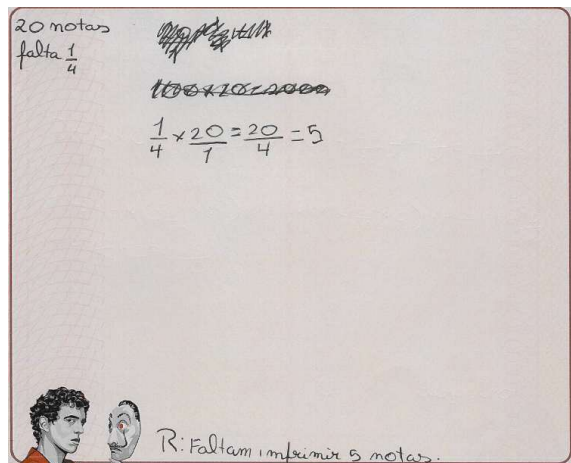 20 notas
falta 1/4
100 x 20 = 2000
1/4 x 20/1 = 20/4 = 5
R: Faltam imprimir 5 notas.